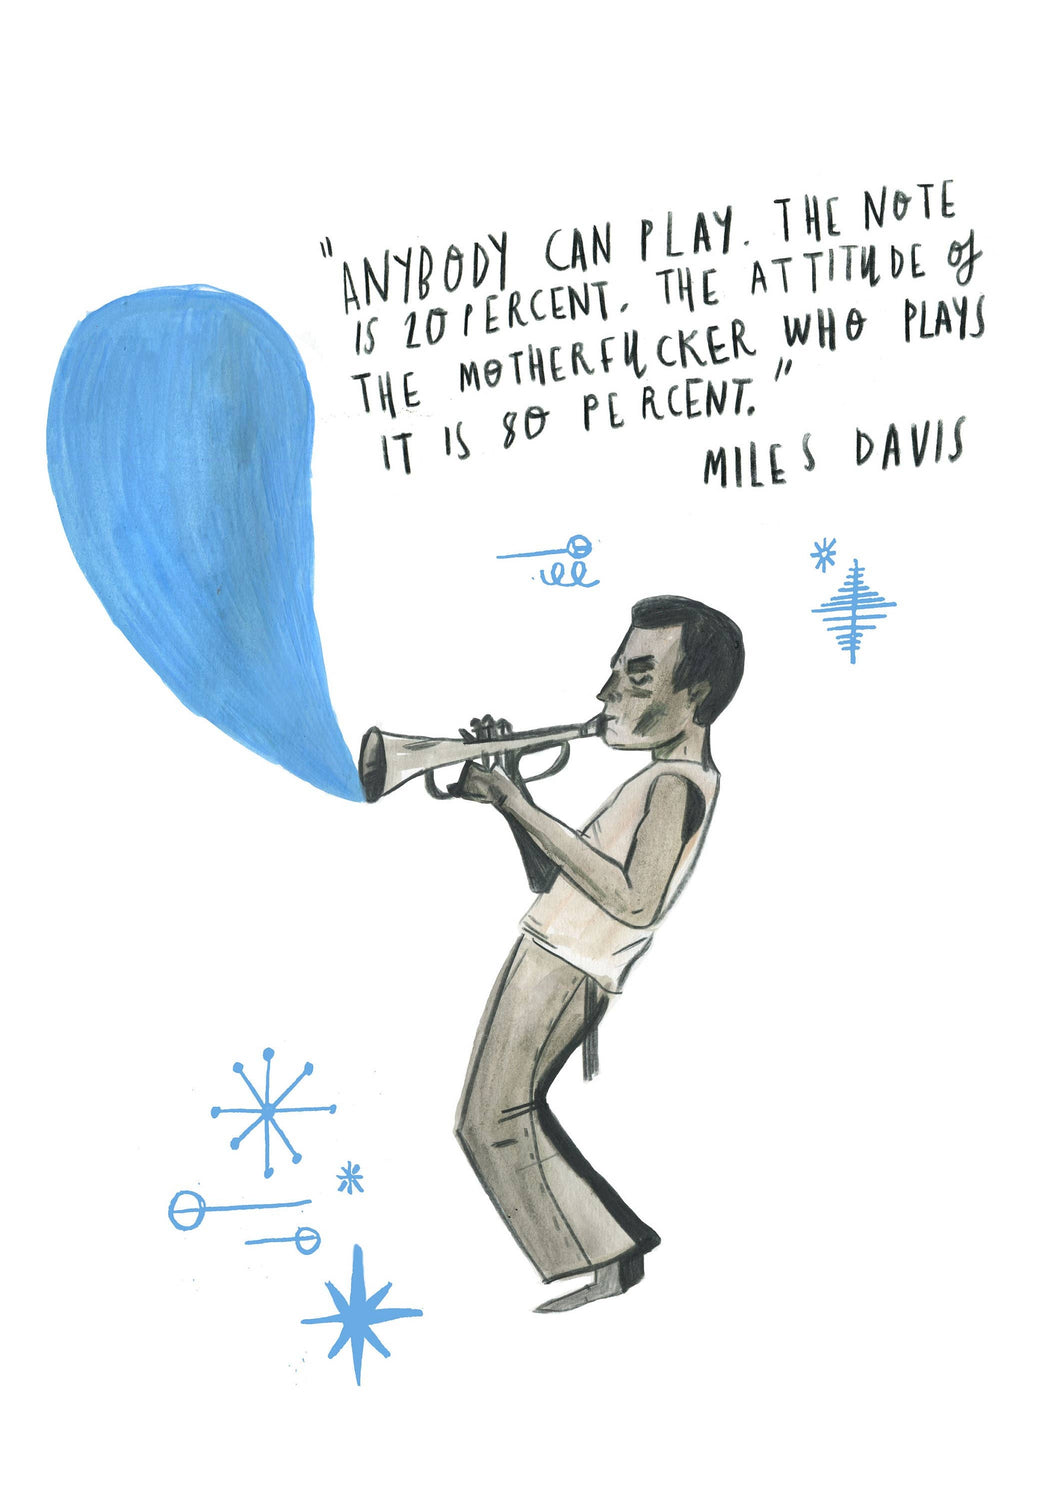 "ANYBODY CAN PLAY. THE NOTE
IS 20 PERCENT. THE ATTITUDE of
THE MOTHERFUCKER WHO PLAYS
IT IS 80 PERCENT."
MILES DAVIS